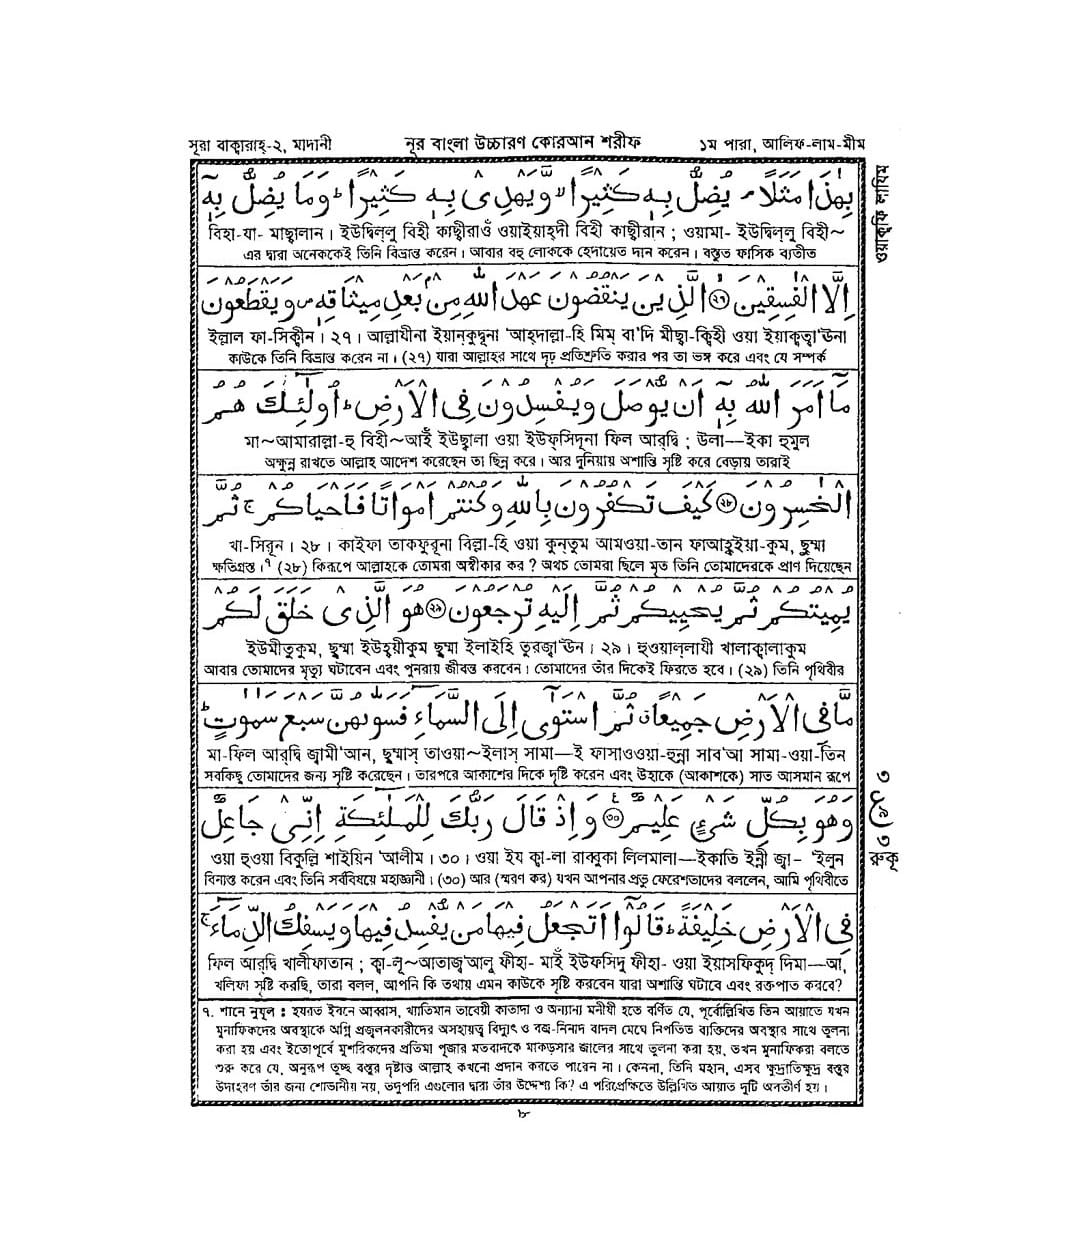 সূরা বাক্বারাহ্-২, মাদানী
নূর বাংলা উচ্চারণ কোরআন শরীফ
১ম পারা, আলিফ-লাম-মীম
ওয়াকফি লাযিম
بِهٰذَا مَثَلًا ۘ يُضِلُّ بِهٖ كَثِيْرًا ۙ وَّيَهْدِىْ بِهٖ كَثِيْرًا ؕ وَمَا يُضِلُّ بِهٖٓ
বিহা-যা- মাছ্বালান। ইউদ্বিল্লু বিহী কাছ্বীরাওঁ ওয়াইয়াহ্দী বিহী কাছ্বীরান ; ওয়ামা- ইউদ্বিল্লু বিহী~
এর দ্বারা অনেককেই তিনি বিভ্রান্ত করেন। আবার বহু লোককে হেদায়েত দান করেন। বস্তুত ফাসিক ব্যতীত
اِلَّا الْفٰسِقِيْنَ ﴿۲۶﴾ الَّذِيْنَ يَنْقُضُوْنَ عَهْدَ اللّٰهِ مِنْۢ بَعْدِ مِيْثَاقِهٖ ۪ وَيَقْطَعُوْنَ
ইল্লাল ফা-সিক্বীন। ২৭। আল্লাযীনা ইয়ান্কুদ্বূনা 'আহ্দাল্লা-হি মিম্ বা'দি মীছ্বা-ক্বিহী ওয়া ইয়াক্বত্বা'ঊনা
কাউকে তিনি বিভ্রান্ত করেন না। (২৭) যারা আল্লাহর সাথে দৃঢ় প্রতিশ্রুতি করার পর তা ভঙ্গ করে এবং যে সম্পর্ক
مَآ اَمَرَ اللّٰهُ بِهٖٓ اَنْ يُّوْصَلَ وَيُفْسِدُوْنَ فِى الْاَرْضِ ؕ اُولٰٓئِكَ هُمُ
মা~আমারাল্লা-হু বিহী~আইঁ ইউছ্বালা ওয়া ইউফ্সিদূনা ফিল আর্দ্বি ; উলা—ইকা হুমুল
অক্ষুন্ন রাখতে আল্লাহ আদেশ করেছেন তা ছিন্ন করে। আর দুনিয়ায় অশান্তি সৃষ্টি করে বেড়ায় তারাই
الْخٰسِرُوْنَ ﴿۲۸﴾ كَيْفَ تَكْفُرُوْنَ بِاللّٰهِ وَكُنْتُمْ اَمْوَاتًا فَاَحْيَاكُمْ ۚ ثُمَّ
খা-সিরূন। ২৮। কাইফা তাকফুরূনা বিল্লা-হি ওয়া কুন্তুম আমওয়া-তান ফাআহ্ইয়া-কুম, ছুম্মা
ক্ষতিগ্রস্ত।৭ (২৮) কিরূপে আল্লাহকে তোমরা অস্বীকার কর? অথচ তোমরা ছিলে মৃত তিনি তোমাদেরকে প্রাণ দিয়েছেন
يُمِيْتُكُمْ ثُمَّ يُحْيِيْكُمْ ثُمَّ اِلَيْهِ تُرْجَعُوْنَ ﴿۲۹﴾ هُوَ الَّذِىْ خَلَقَ لَكُمْ
ইউমীতুকুম, ছুম্মা ইউহ্য়ীকুম ছুম্মা ইলাইহি তুরজ্বা'ঊন। ২৯। হুওয়াল্লাযী খালাক্বালাকুম
আবার তোমাদের মৃত্যু ঘটাবেন এবং পুনরায় জীবন্ত করবেন। তোমাদের তাঁর দিকেই ফিরতে হবে। (২৯) তিনি পৃথিবীর
مَّا فِى الْاَرْضِ جَمِيْعًا ۗ ثُمَّ اسْتَوٰٓى اِلَى السَّمَآءِ فَسَوّٰىهُنَّ سَبْعَ سَمٰوٰتٍ ؕ
মা-ফিল আর্দ্বি জ্বামী'আন, ছুম্মাস্ তাওয়া~ইলাস্ সামা—ই ফাসাওওয়া-হুন্না সাব'আ সামা-ওয়া-তিন
সবকিছু তোমাদের জন্য সৃষ্টি করেছেন। তারপরে আকাশের দিকে দৃষ্টি করেন এবং উহাকে (আকাশকে) সাত আসমান রূপে
وَهُوَ بِكُلِّ شَىْءٍ عَلِيْمٌ ﴿۳۰﴾ وَاِذْ قَالَ رَبُّكَ لِلْمَلٰٓئِكَةِ اِنِّىْ جَاعِلٌ
ওয়া হুওয়া বিকুল্লি শাইয়িন 'আলীম। ৩০। ওয়া ইয ক্বা-লা রাব্বুকা লিলমালা—ইকাতি ইন্নী জ্বা- 'ইলুন
বিন্যস্ত করেন এবং তিনি সর্ববিষয়ে মহাজ্ঞানী। (৩০) আর (স্মরণ কর) যখন আপনার প্রভু ফেরেশতাদের বললেন, আমি পৃথিবীতে
৩
ع
৯
৩
রুকূ
فِى الْاَرْضِ خَلِيْفَةً ؕ قَالُوْٓا اَتَجْعَلُ فِيْهَا مَنْ يُّفْسِدُ فِيْهَا وَيَسْفِكُ الدِّمَآءَ ۚ
ফিল আর্দ্বি খালীফাতান ; ক্বা-লূ~আতাজ্ব'আলু ফীহা- মাইঁ ইউফসিদু ফীহা- ওয়া ইয়াসফিকুদ্ দিমা—আ,
খলিফা সৃষ্টি করছি, তারা বলল, আপনি কি তথায় এমন কাউকে সৃষ্টি করবেন যারা অশান্তি ঘটাবে এবং রক্তপাত করবে?
৭. শানে নুযূল : হযরত ইবনে আব্বাস, খ্যাতিমান তাবেয়ী কাতাদা ও অন্যান্য মনীষী হতে বর্ণিত যে, পূর্বোল্লিখিত তিন আয়াতে যখন
মুনাফিকদের অবস্থাকে অগ্নি প্রজ্বলনকারীদের অসহায়ত্ব বিদ্যুৎ ও বজ্র-নিনাদ বাদল মেঘে নিপতিত ব্যক্তিদের অবস্থার সাথে তুলনা
করা হয় এবং ইতোপূর্বে মুশরিকদের প্রতিমা পূজার মতবাদকে মাকড়সার জালের সাথে তুলনা করা হয়, তখন মুনাফিকরা বলতে
শুরু করে যে, অনুরূপ তুচ্ছ বস্তুর দৃষ্টান্ত আল্লাহ কখনো প্রদান করতে পারেন না। কেননা, তিনি মহান, এসব ক্ষুদ্রাতিক্ষুদ্র বস্তুর
উদাহরণ তাঁর জন্য শোভানীয় নয়, তদুপরি এগুলোর দ্বারা তাঁর উদ্দেশ্য কি? এ পরিপ্রেক্ষিতে উল্লিখিত আয়াত দুটি অবতীর্ণ হয়।
৮